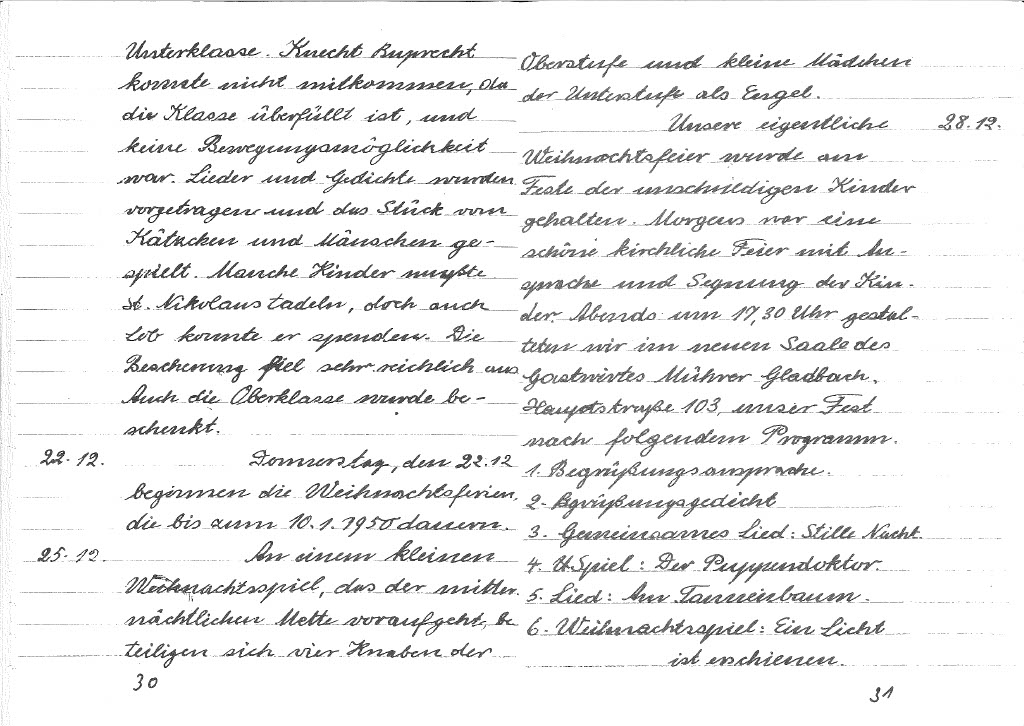 Unterklasse. Knecht Ruprecht
konnte nicht mitkommen, da
die Klasse überfüllt ist, und
keine Bewegungsmöglichkeit
war. Lieder und Gedichte wurden
vorgetragen und das Stück vom
Kätzchen und Mänschen ge-
spielt. Manche Kinder mußte
St. Nikolaus tadeln, doch auch
Lob konnte er spenden. Die
Bescherung fiel sehr reichlich aus
Auch die Oberklasse wurde be-
schenkt.
22.12. Donnerstag, den 22.12
beginnen die Weihnachtsferien,
die bis zum 10.1.1950 dauern.
25.12. An einem kleinen
Weihnachtsspiel, das der mitter
nächtlichen Mette voraufgeht, be
teiligen sich vier Knaben der
30
Oberstufe und kleine Mädchen
der Unterstufe als Engel.
Unsere eigentliche 28.12.
Weihnachtsfeier wurde am
Feste der unschuldigen Kinder
gehalten. Morgens war eine
schöne kirchliche Feier mit An-
sprache und Segnung der Kin-
der. Abends um 17,30 Uhr gestal-
teten wir im neuen Saale des
Gastwirtes Mührer Gladbach,
Hauptstraße 103, unser Fest
nach folgendem Programm.
1. Begrüßungsansprache.
2. Bgrüßungsgedicht
3. Gemeinsames Lied: Stille Nacht.
4. Spiel: Der Puppendoktor.
5. Lied: Am Tannenbaum.
6. Weihnachtsspiel: Ein Licht
ist erschienen.
31